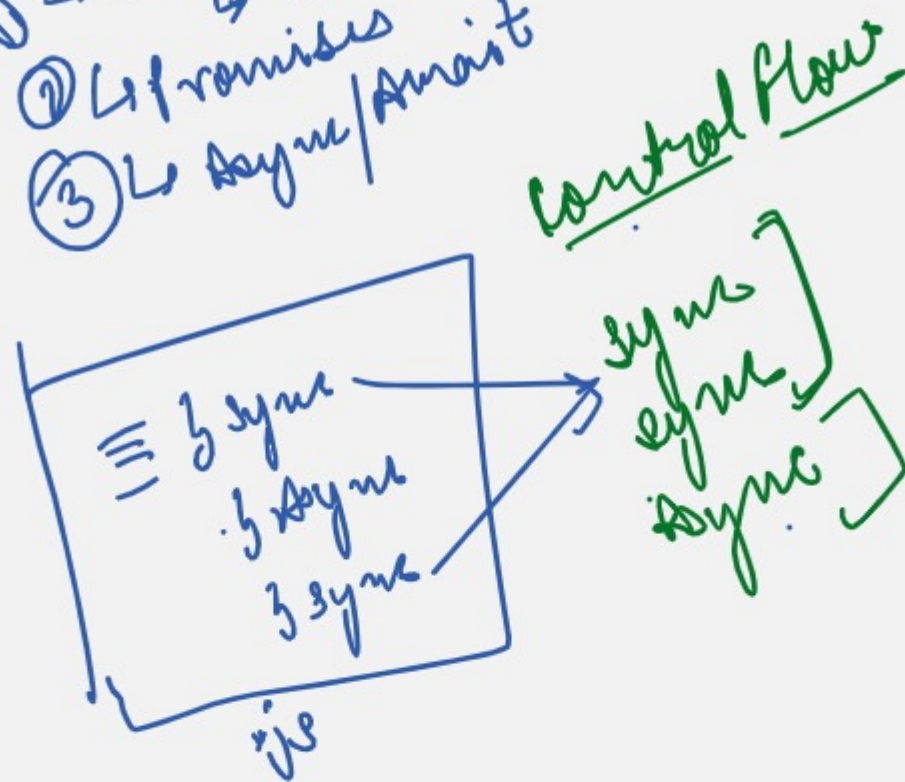 ② ↳ Promises
③ ↳ Async/Await
Control Flow
} Sync
} Async
} Sync
js
Sync
Sync
Async